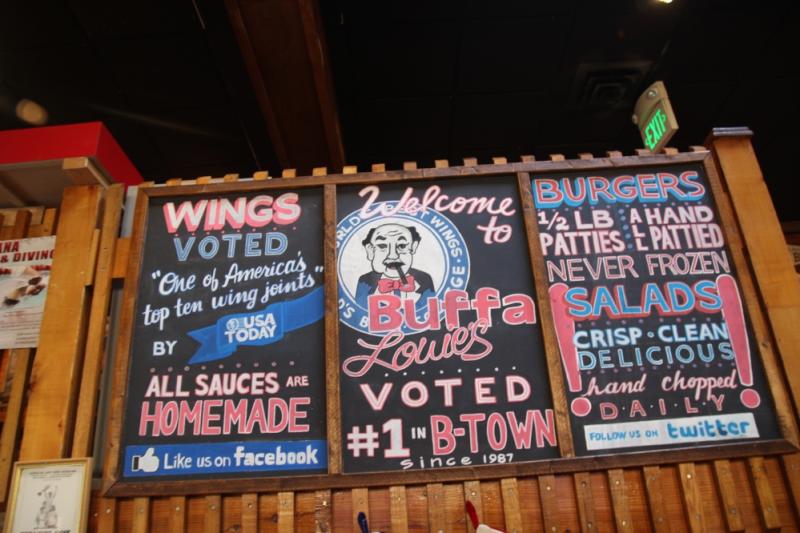 WINGS
VOTED
"One of America's
top ten wing joints"
BY
USA
TODAY
ALL SAUCES ARE
HOMEMADE
Like us on facebook
Welcome
to
WINGS
Buffa
Louie's
VOTED
#1 IN B-TOWN
since 1987
BURGERS
1/2 LB
PATTIES
ALL
HAND
PATTIED
NEVER FROZEN
SALADS
CRISP • CLEAN
DELICIOUS
hand chopped
DAILY
FOLLOW US ON twitter
EXIT
ANA
& DIVING